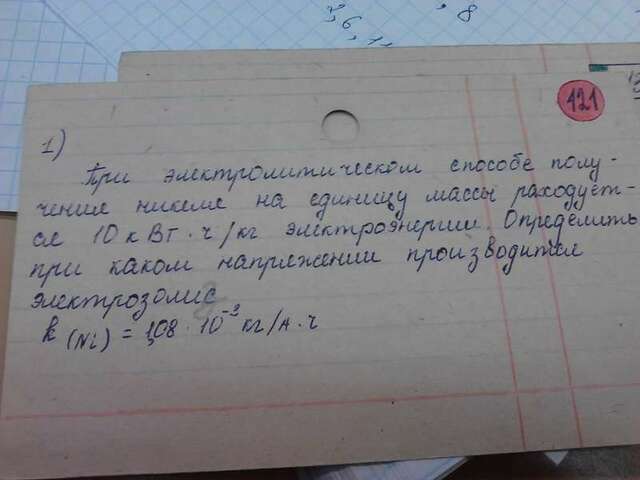 8
6
11
121
1)
При электролитическом способе полу-
чения никеля на единицу массы раходует-
ся 10 кВт·ч/кг электроэнергии. Определить
при каком напряжении производится
электрозолис
k (Ni) = 1,08 · 10⁻³ кг/А·ч